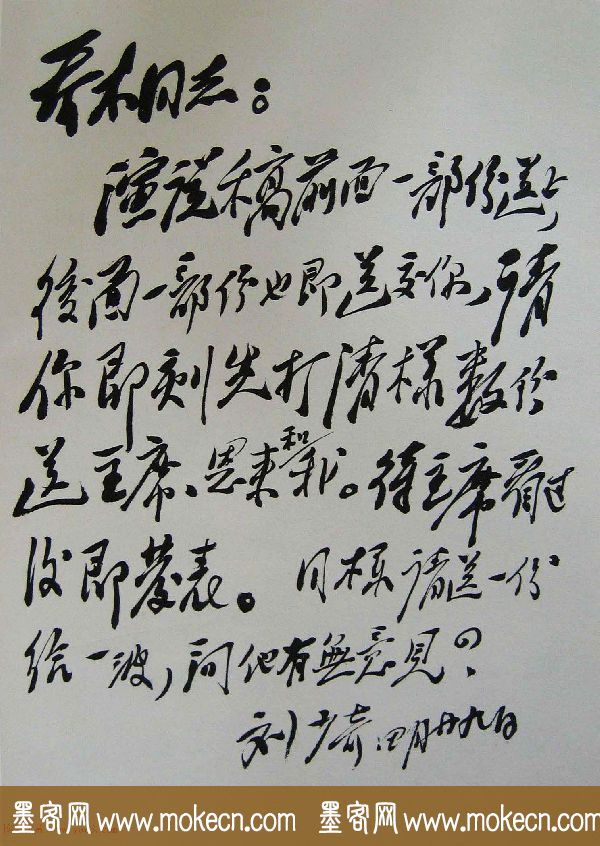 乔木同志：
演说稿前面一部份送上，
後面一部份也即送交你，请
你即刻先打清样数份
送主席、恩来和我。待主席看过
后即发表。同样请送一份
给一波，问他有無意见？
刘少奇 四月廿九日
墨客网 www.mokecn.com 墨客网 www.mokecn.com